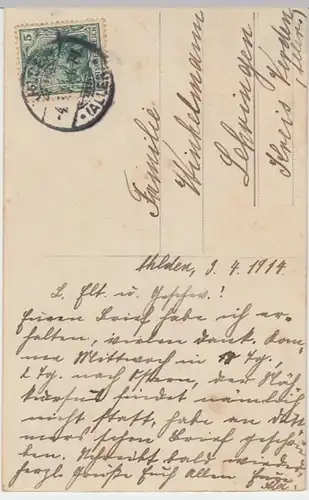 5
Familie
Winkelmann
Lehringen
Kreis Verden
(Aller)
Ahlden, 3. 4. 1914.
L. Elt. u. Geschw.!
Euren Brief habe ich er-
halten, vielen Dank. Kom-
me Mittwoch in Tg.,
Tg. nach Ostern, der Näh
kursus findet nämlich
nicht statt, habe an
schon Brief geschrie-
ben. Schreibt bald wieder
herzl. Grüße Euch Allen